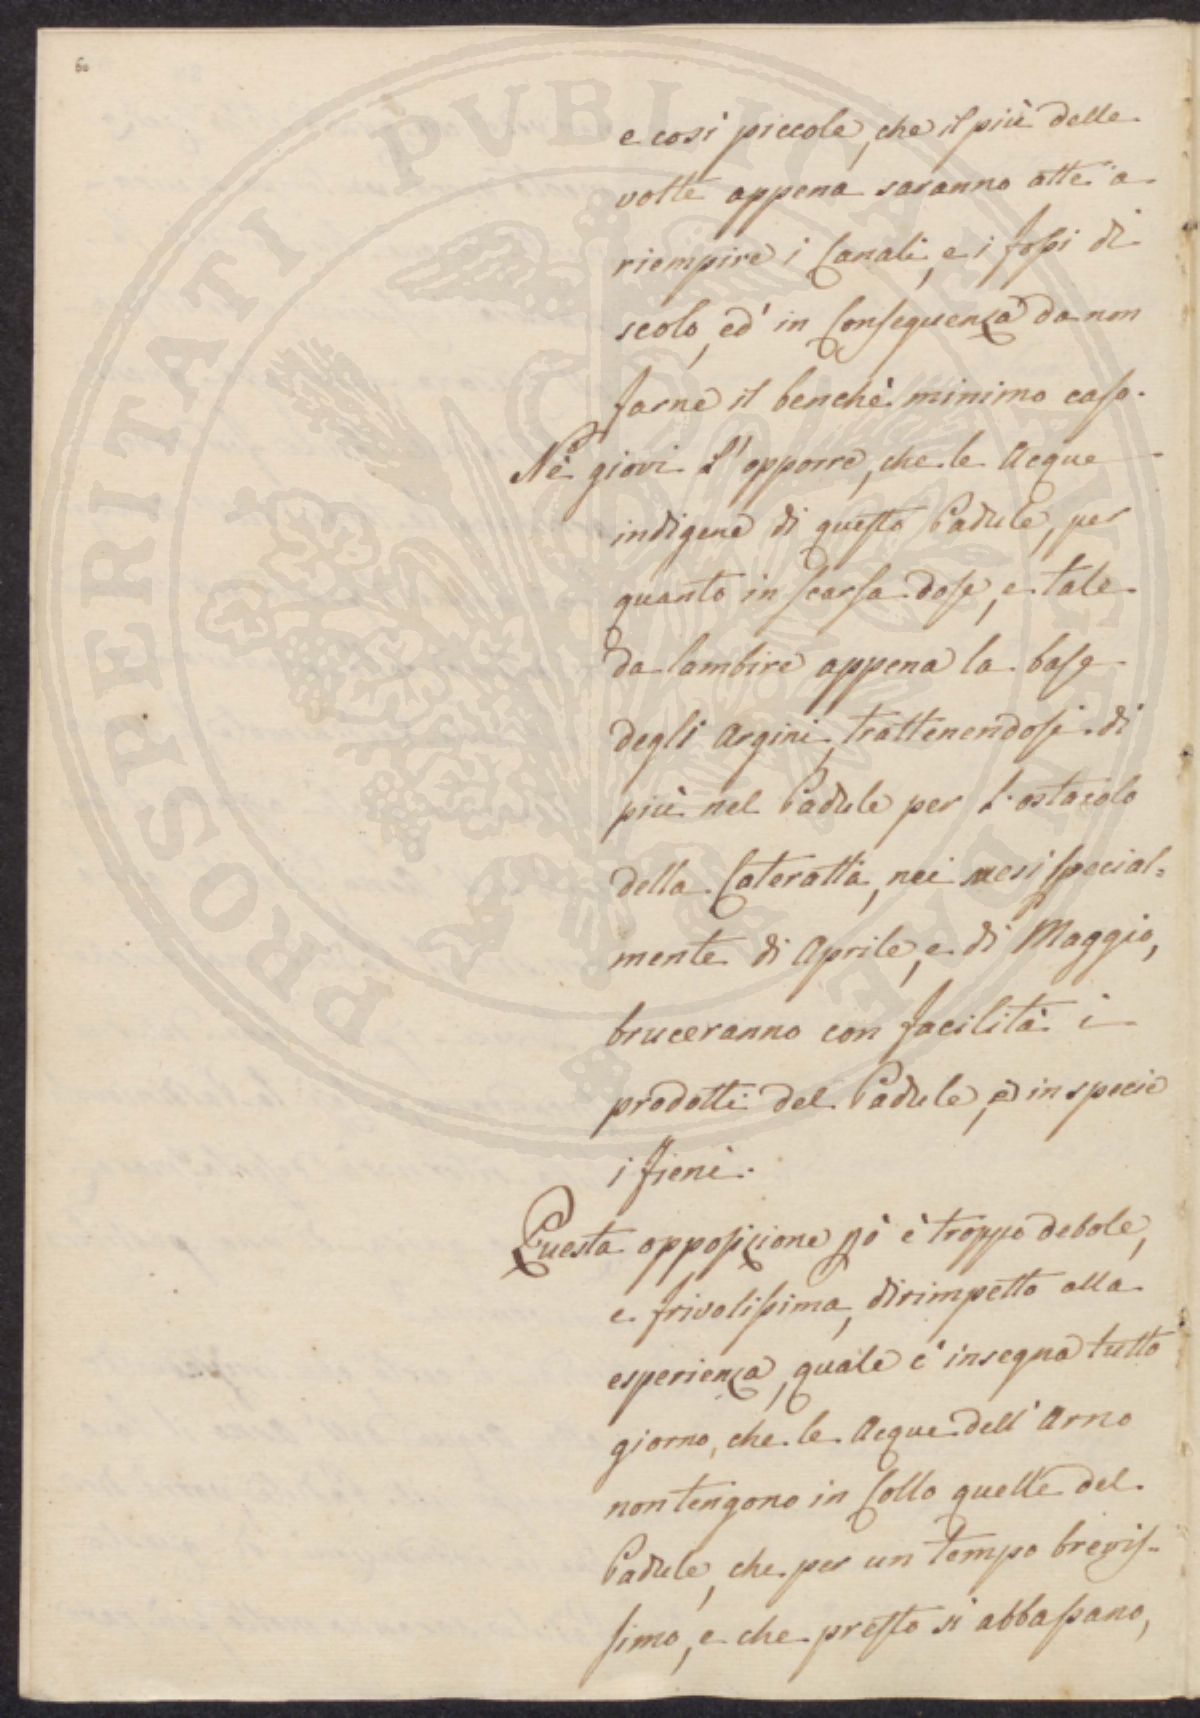 60
e così piccole, che il più delle
volte appena saranno atte a
riempire i Canali, e i fossi di
scolo, ed' in Conseguenza da non
farne il benchè minimo caso.
Nè giovi L'opporre, che le Acque
indigene di questo Padule, per
quanto in scarsa dose, e tale
da lambire appena la base
degli Argini, trattenendosi di
più nel Padule per L'ostacolo
della Cateratta, nei mesi special=
mente di Aprile, e di Maggio,
bruceranno con facilità i
prodotti del Padule, e in specie
i fieni.
Questa opposizione però è troppo debole,
e frivolissima, dirimpetto alla
esperienza, quale c'insegna tutto
giorno, che le Acque dell'Arno
non tengono in Collo quelle del
Padule, che per un tempo brevis=
simo, e che presto si abbassano,
PROSPERITATI PVBLICAE AVGENDAE